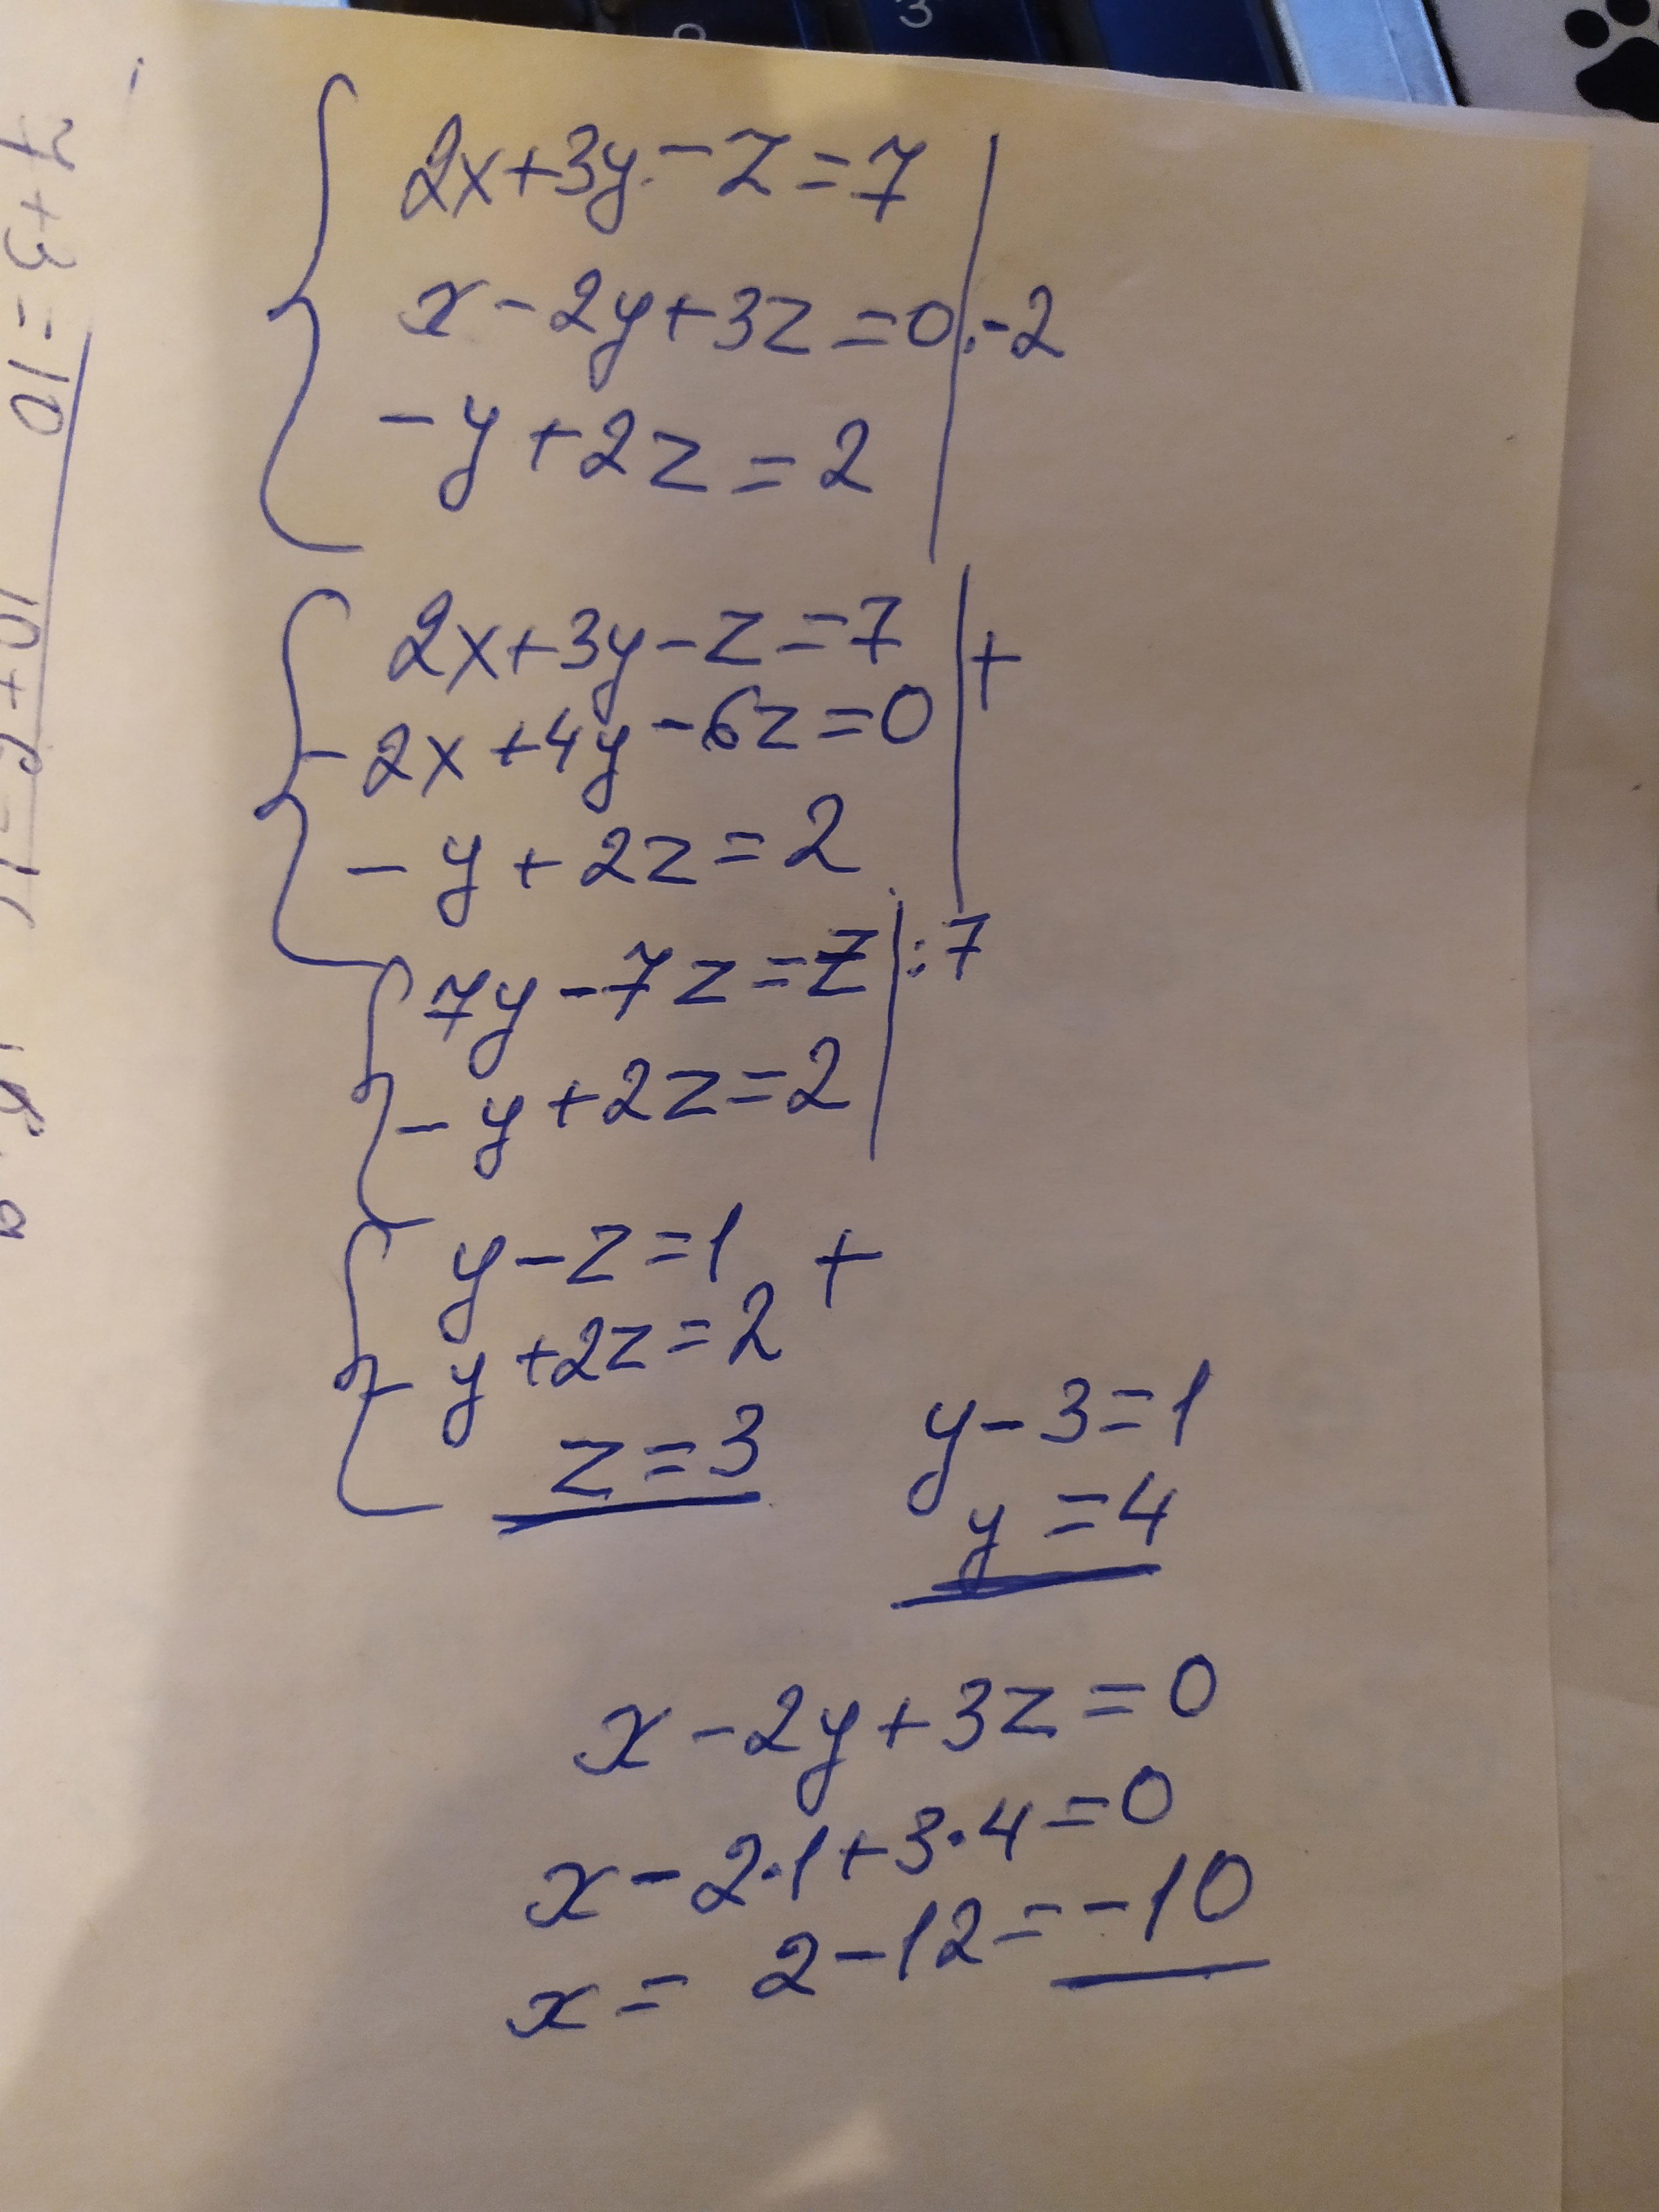 2x+3y-z=7
x-2y+3z=0 |·-2
-y+2z=2
2x+3y-z=7 | +
-2x+4y-6z=0
-y+2z=2
7y-7z=7 |:7
-y+2z=2
y-z=1 +
-y+2z=2
z=3
y-3=1
y=4
x-2y+3z=0
x-2·1+3·4=0
x=2-12=-10
7+3=10
3